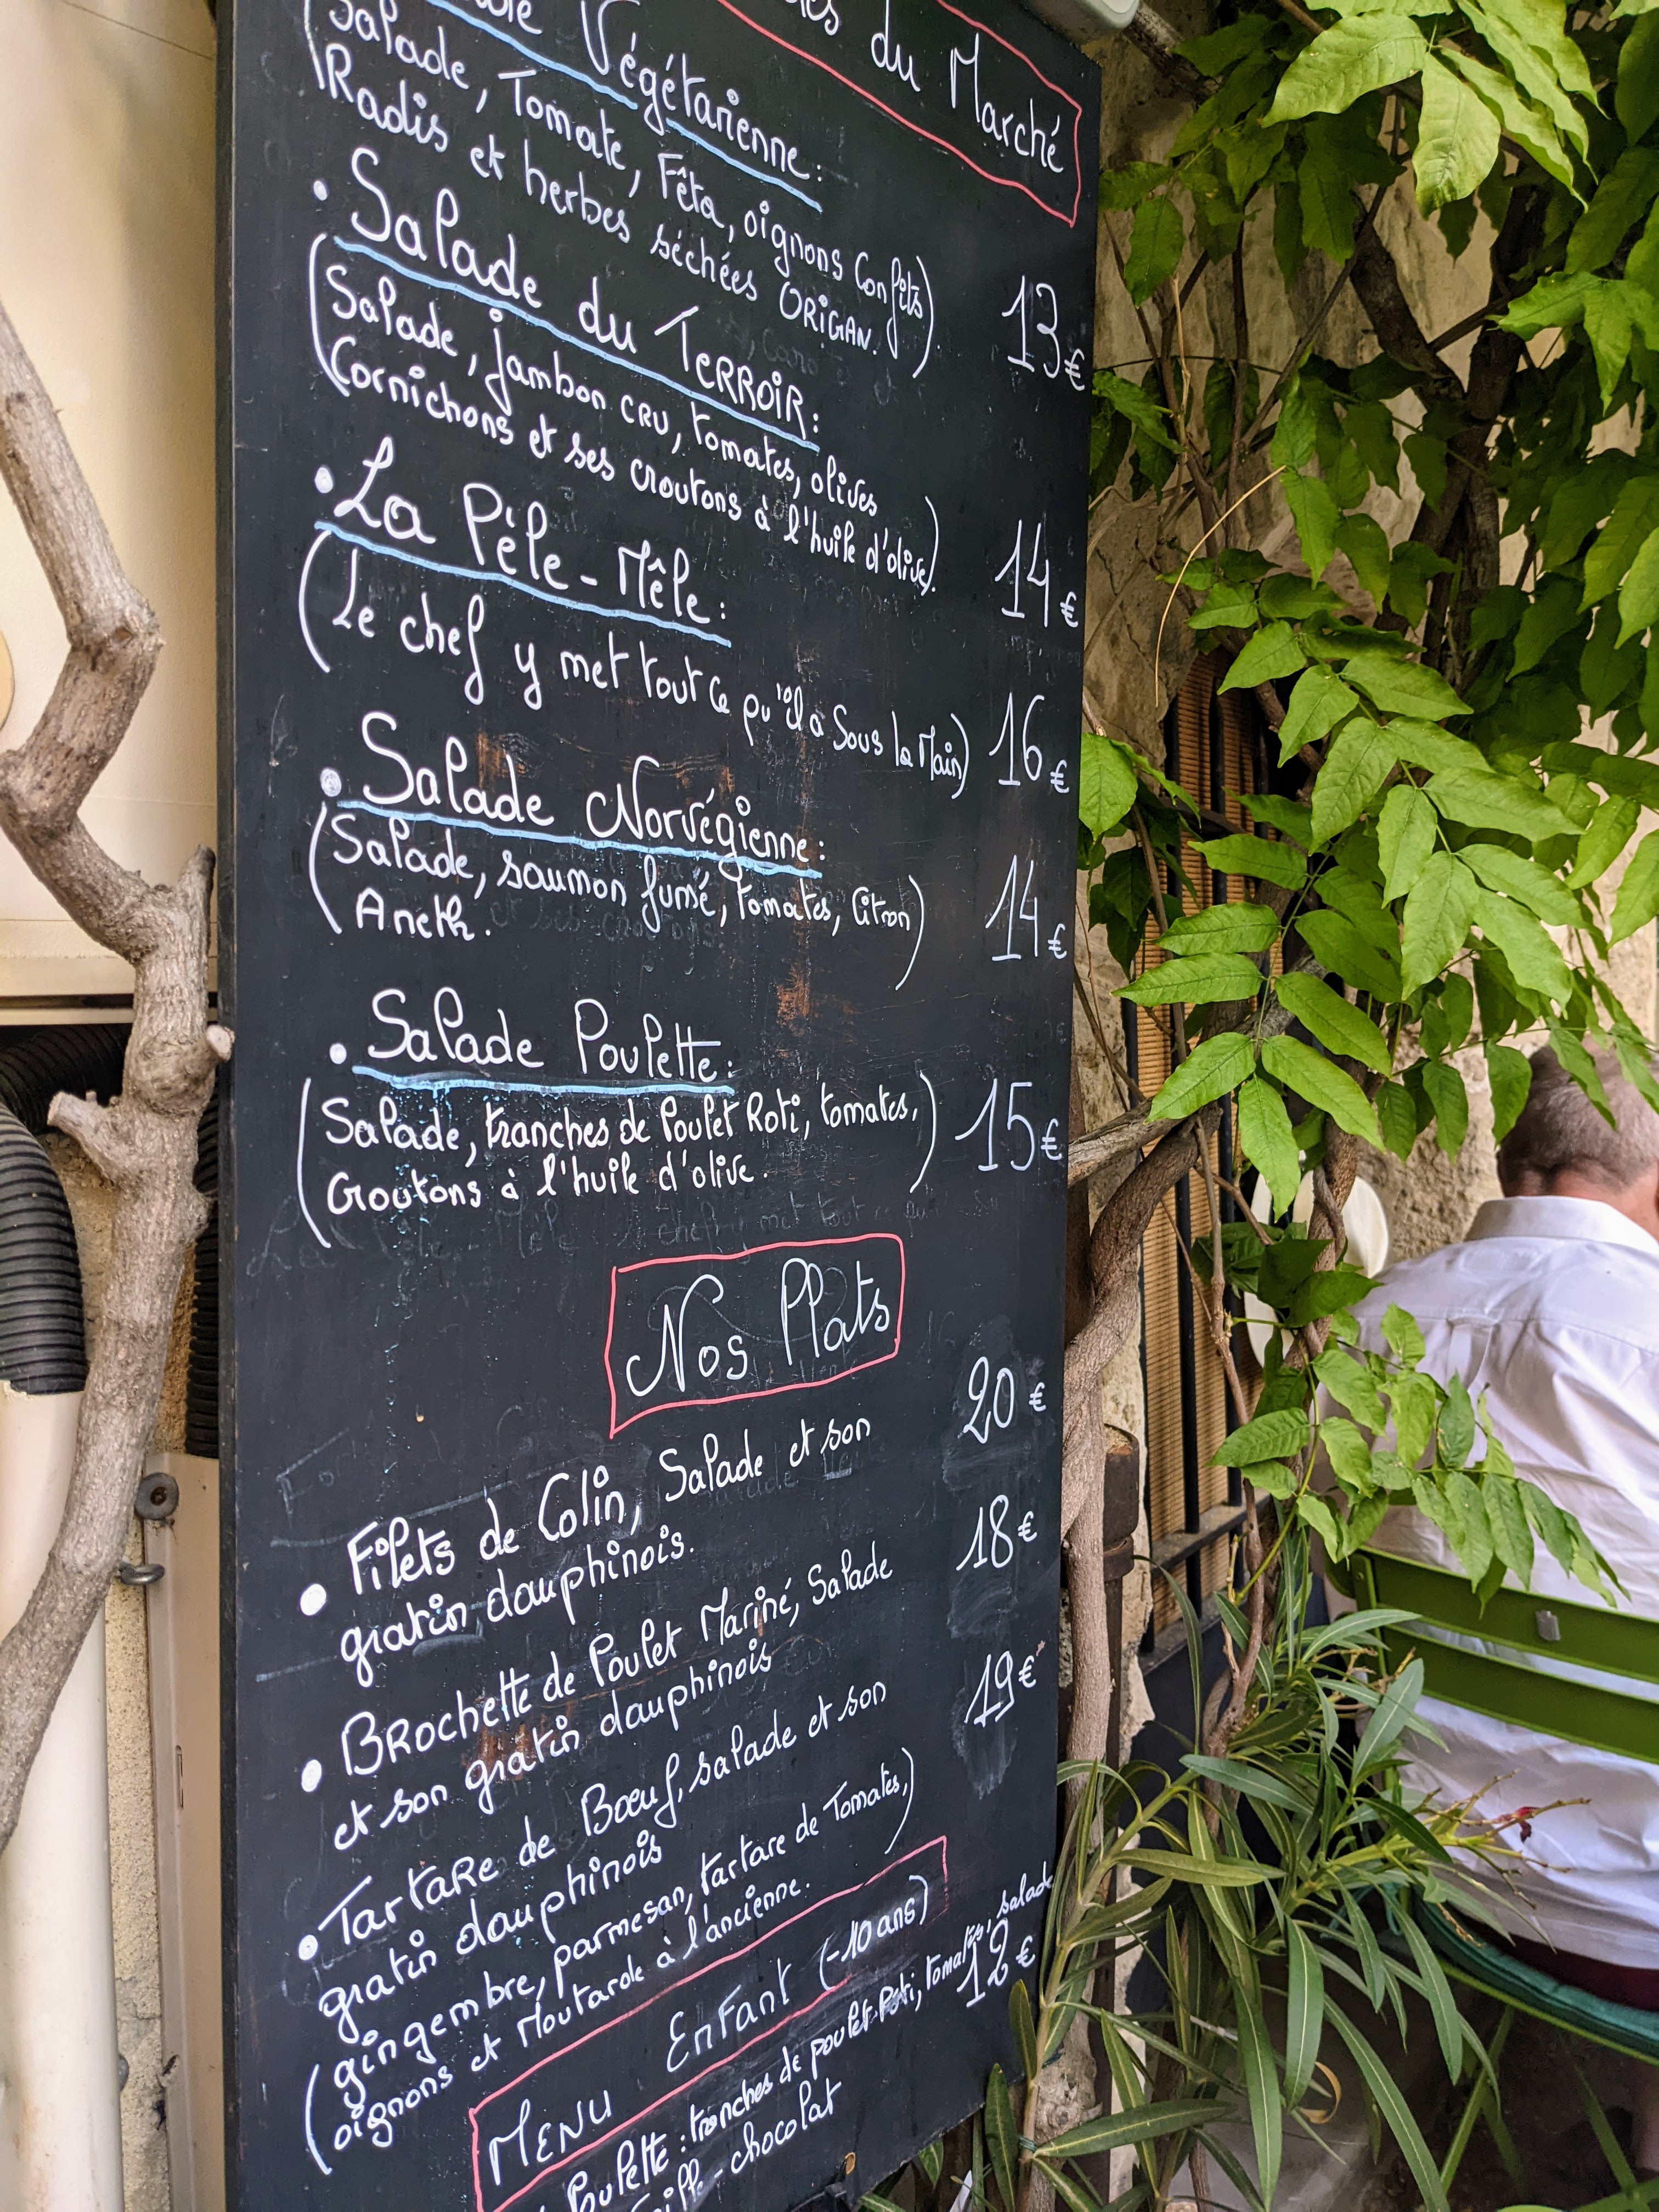 du Marché
Végétarienne:
(Salade, Tomate, Fêta, oignons Confits)
Radis et herbes séchées ORIGAN.
13€
• Salade du TERROIR:
(Salade, jambon CRU, tomates, olives
Cornichons et ses croutons à l'huile d'olive).
14€
• La Pêle-Mêle:
(Le chef y met tout ce qu'il a sous la Main)
16€
• Salade Norvégienne:
(Salade, saumon fumé, tomates, Citron)
Aneth.
14€
• Salade Poulette:
(Salade, tranches de Poulet Roti, tomates,)
Croutons à l'huile d'olive.
15€
Nos Plats
• Filets de Colin, Salade et son
gratin dauphinois.
20€
• BRochette de Poulet Mariné, Salade
et son gratin dauphinois
18€
• TartaRe de Bœuf, salade et son
gratin dauphinois
19€
(gingembre, parmesan, tartare de Tomates,)
oignons et Moutarde à l'ancienne.
MENU EnFanT (-10ans)
Poulette: tranches de poulet Roti, tomates, salade
12€
- chocolat